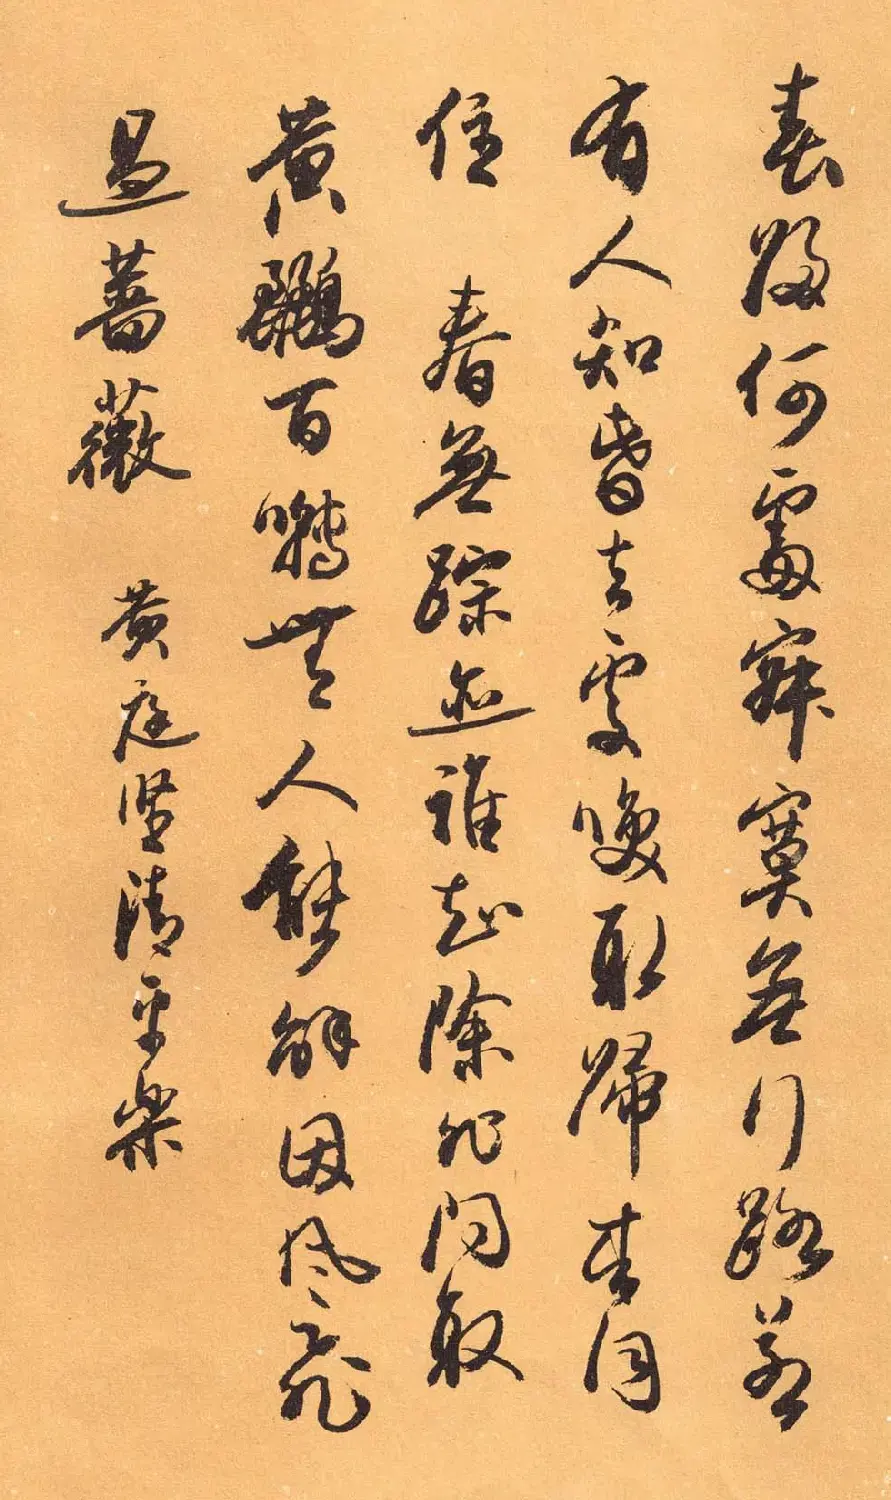 春歸何處寂寞無行路若
有人知春去處喚取歸來同
住 春無踪迹誰知除非問取
黃鸝百囀無人能解因風飛
過薔薇 黃庭堅清平樂